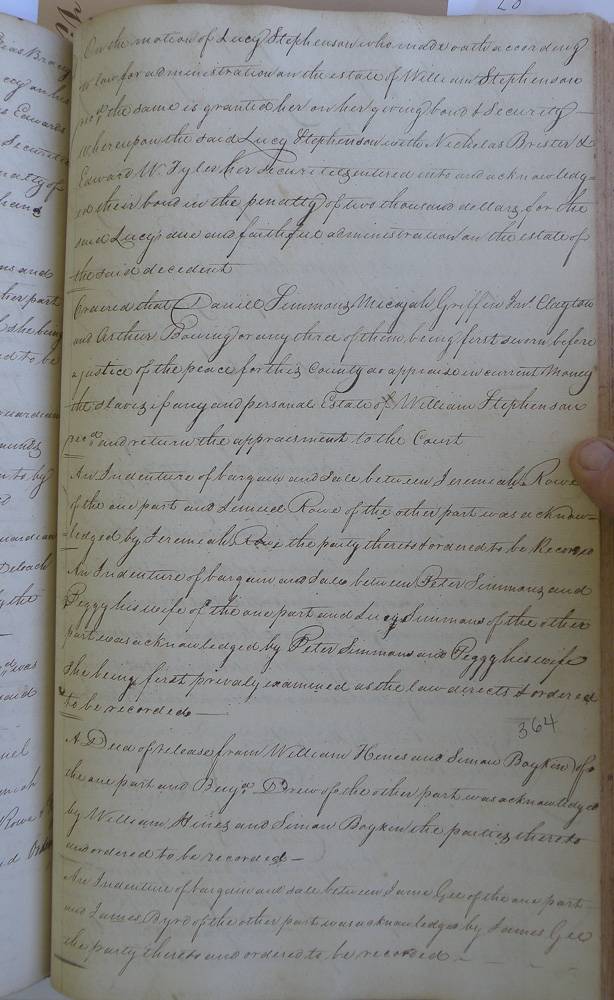 On the motion of Lucy Stephenson who made oath according
to law for administration on the estate of William Stephenson
the same is granted her on her giving bond & Security —
whereupon the said Lucy Stephenson with Nicholas Brister &
Edward W. Tyles her Securities entered into and acknowledg-
ed their bond in the penalty of two thousand dollars for the
said Lucy's due and faithful administration on the estate of
the said decedent
Ordered that Daniel Simmons, Micajah Griffin Jno. Clayton
and Arthur Boeing or any three of them, being first sworn before
a justice of the peace for this County do appraise in current Money
the slaves if any and personal Estate of William Stephenson
decd. and return the appraisment to the Court
An Indenture of bargain and sale between Jeremiah Rowe
of the one part and Lemuel Rowe of the other part was acknow-
ledged by Jeremiah Rowe the party thereto & ordered to be Recorded
An Indenture of bargain and Sale between Peter Simmons and
Peggy his wife of the one part and Lucy Simmons of the other
part was acknowledged by Peter Simmons and Peggy his wife
She being first privaly examined as the law directs & ordered
to be recorded —
364
A Deed of release from William Hines and Simon Boykin of
the one part and Benja. Drew of the other part was acknowledged
by William Hines and Simon Boykin the parties thereto
and ordered to be recorded —
An Indenture of bargain and sale between James Gee of the one part
and James Byrd of the other part was acknowledged by James Gee
the party thereto and ordered to be recorded —